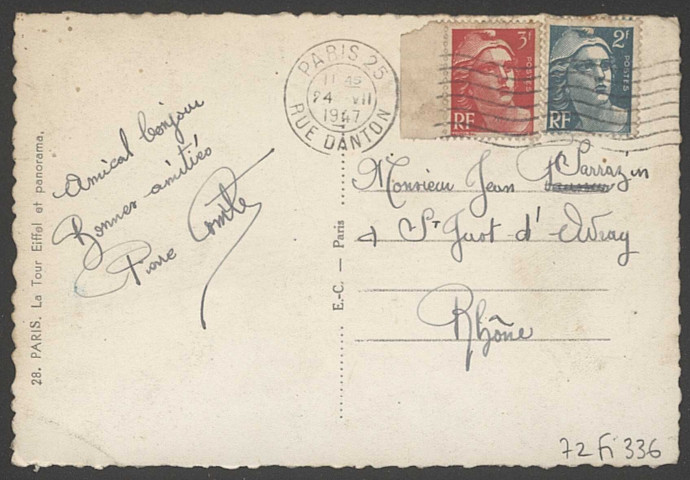 28. PARIS. La Tour Eiffel et panorama.
Amical bonjour
Bonnes amitiés
Pierre Comte
E.-C. — Paris
PARIS 25
11 45
24 VII
1947
RUE DANTON
3F
POSTES
RF
2F
POSTES
RF
Monsieur Jean Sarrazin
à St Just d'Avray
Rhône
72 Fi 336